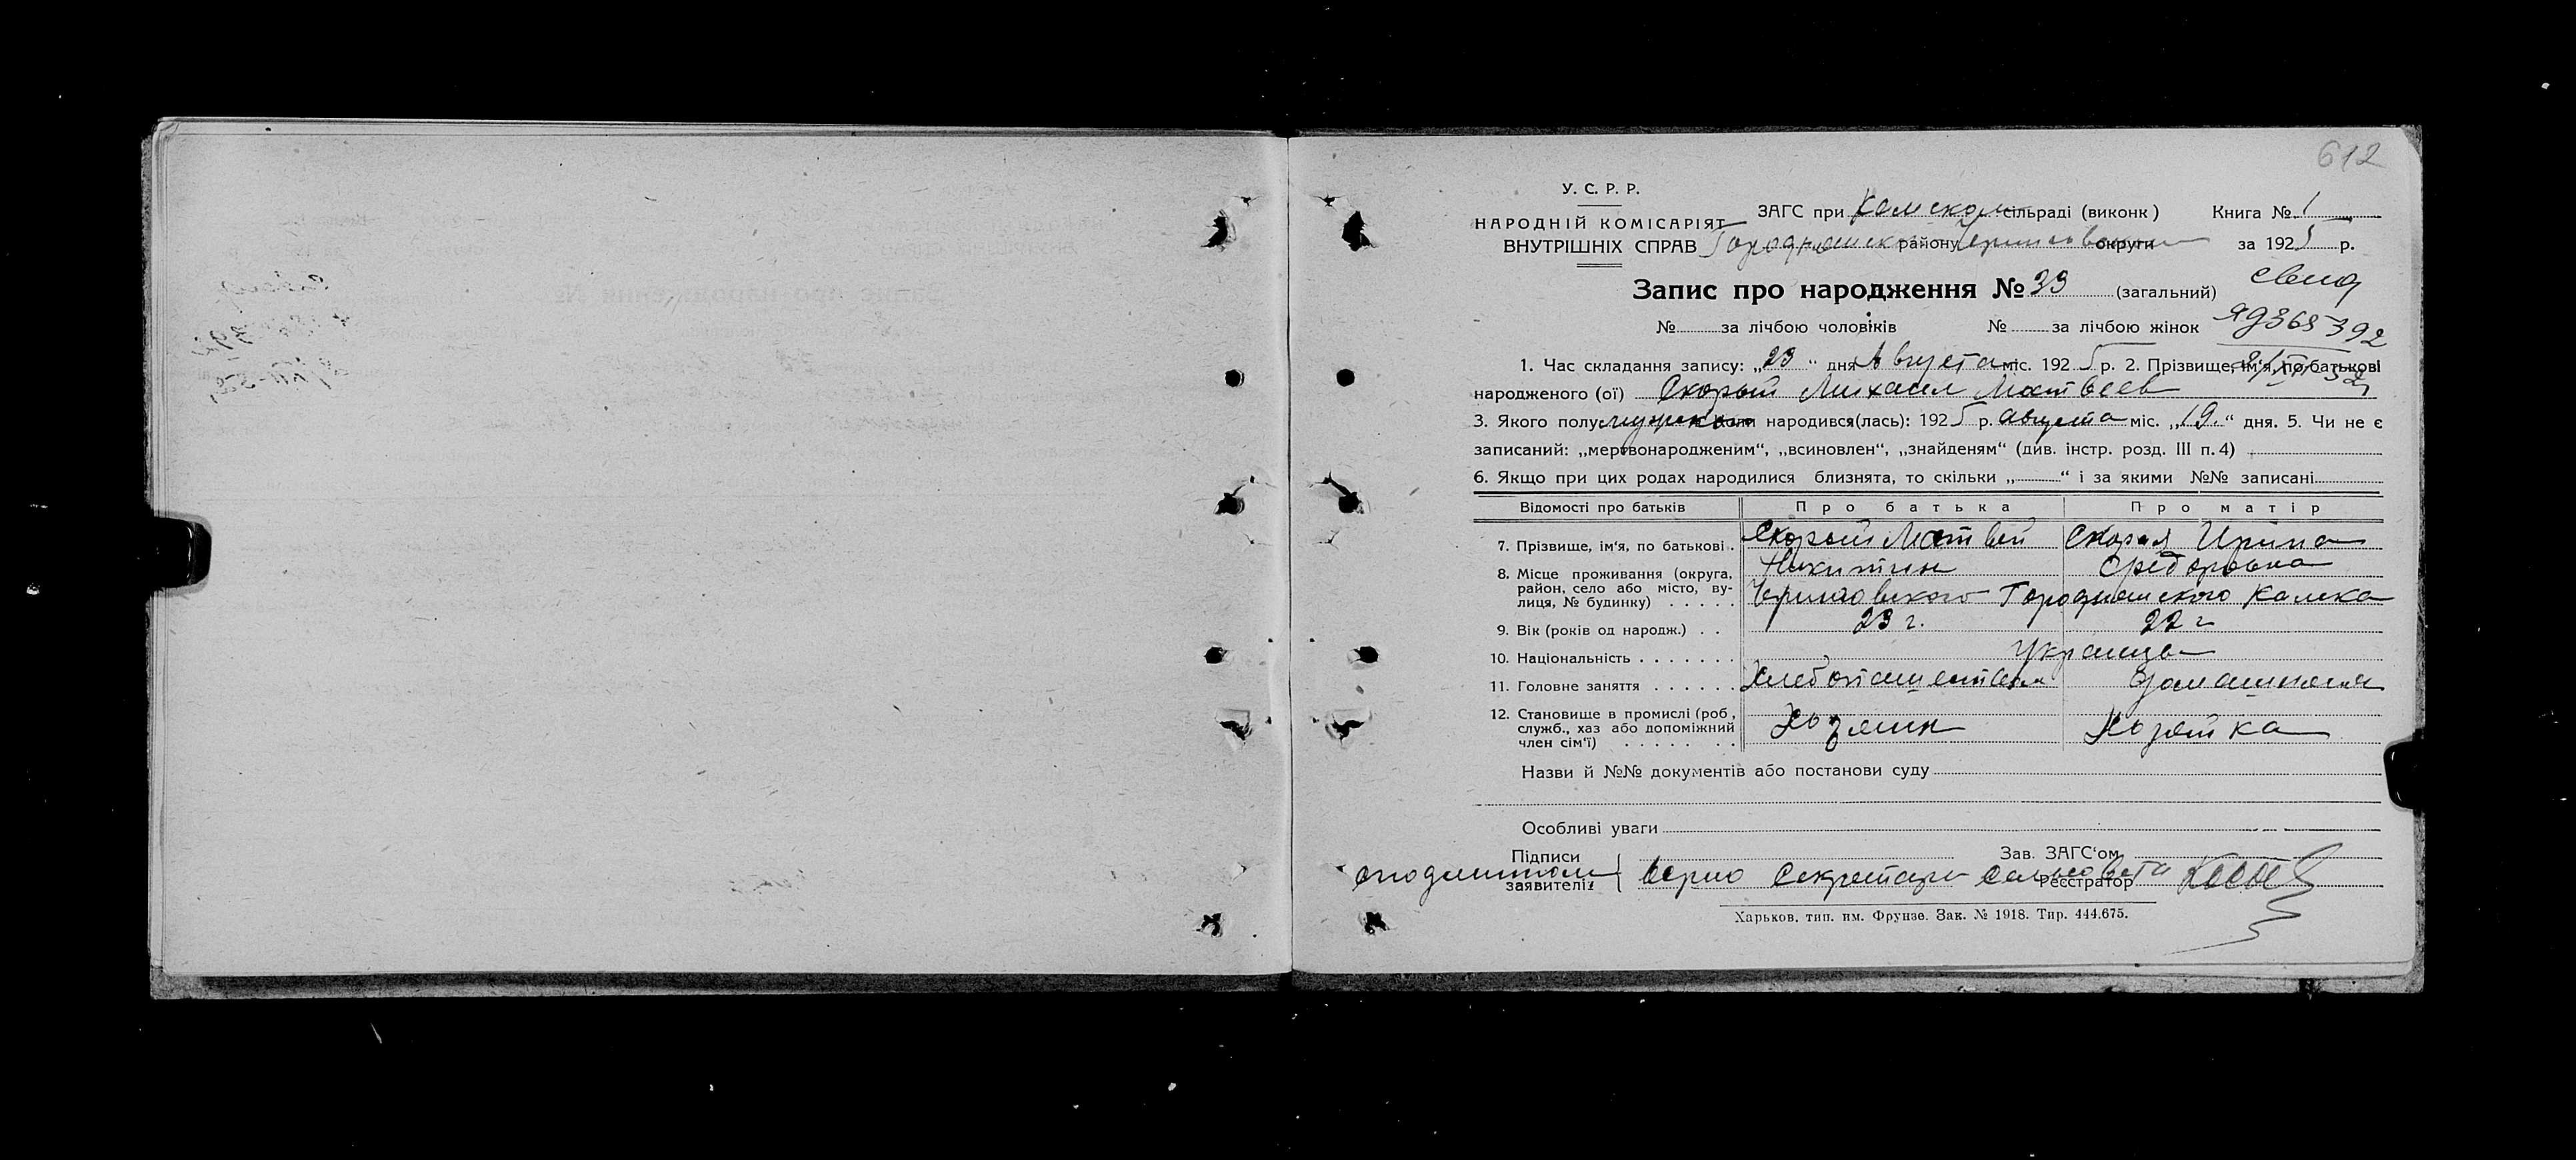 612
У. С. Р. Р.
НАРОДНІЙ КОМІСАРІЯТ
ВНУТРІШНІХ СПРАВ
ЗАГС при Камском сільраді (виконк) Книга № 1
Городнянского району Черниговской округи за 1925 р.
Запис про народження № 33 (загальний)
№ за лічбою чоловіків № за лічбою жінок
ЯД 365392
1. Час складання запису: „23“ дня Августа міс. 1925 р. 2. Прізвище, ім'я, по батькові
народженого (ої) Скорый Михаил Матвеев
3. Якого полу мужско народився(лась): 1925 р. августа міс. „19.“ дня. 5. Чи не є
записаний: „мертвонародженим“, „всиновлен“, „знайденям“ (див. інстр. розд. III п. 4)
6. Якщо при цих родах народилися близнята, то скільки „ “ і за якими №№ записані
Відомості про батьків Про батька Про матір
7. Прізвище, ім'я, по батькові. Скорый Матвей Скорая Ирина
Никитин Федоровна
8. Місце проживання (округа,
район, село або місто, ву-
лиця, № будинку) Черниговского Городнянского Камка
9. Вік (років од народж.) 23 г. 22 г
10. Національність Украинцы
11. Головне заняття Хлебопашество Домашняя
12. Становище в промислі (роб,
служб., хаз або допоміжний
член сім'ї) Хозяин Хозяйка
Назви й №№ документів або постанови суду
Особливі уваги
Підписи Зав. ЗАГС'ом
заявителів с подлинном верно Секретарь Сельсовета Реєстратор
Харьков, тип. им. Фрунзе. Зак. № 1918. Тир. 444.675.